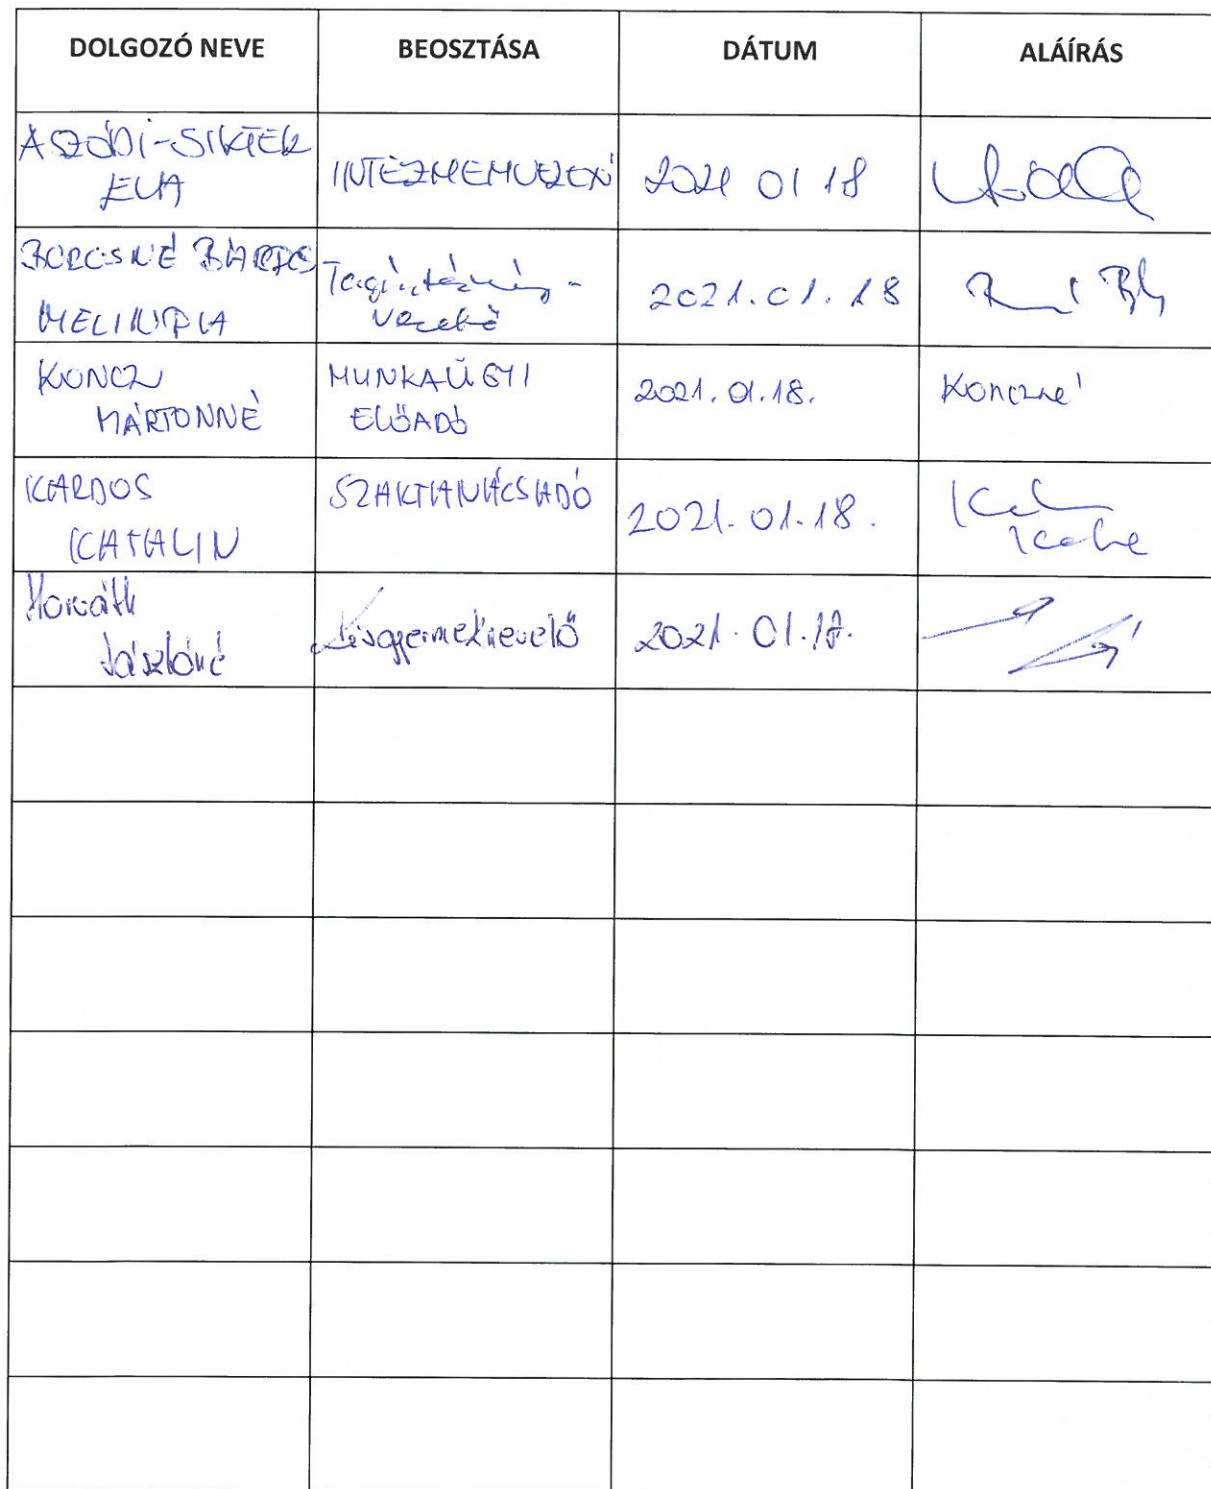 DOLGOZÓ NEVE BEOSZTÁSA DÁTUM ALÁÍRÁS
ASZÓDI-SIKTER
ÉVA
INTÉZMÉNYVEZETŐ 2021 01 18
BOROSNÉ
Tagintézmény-
vezető
2021.01.18
KONCZ
MÁRTONNÉ
MUNKAÜGYI
ELŐADÓ
2021.01.18. Konczné
KARDOS
KATALIN
SZAKTANÁCSADÓ 2021.01.18.
Horváth
Lászlóné
kisgyermeknevelő 2021.01.18.